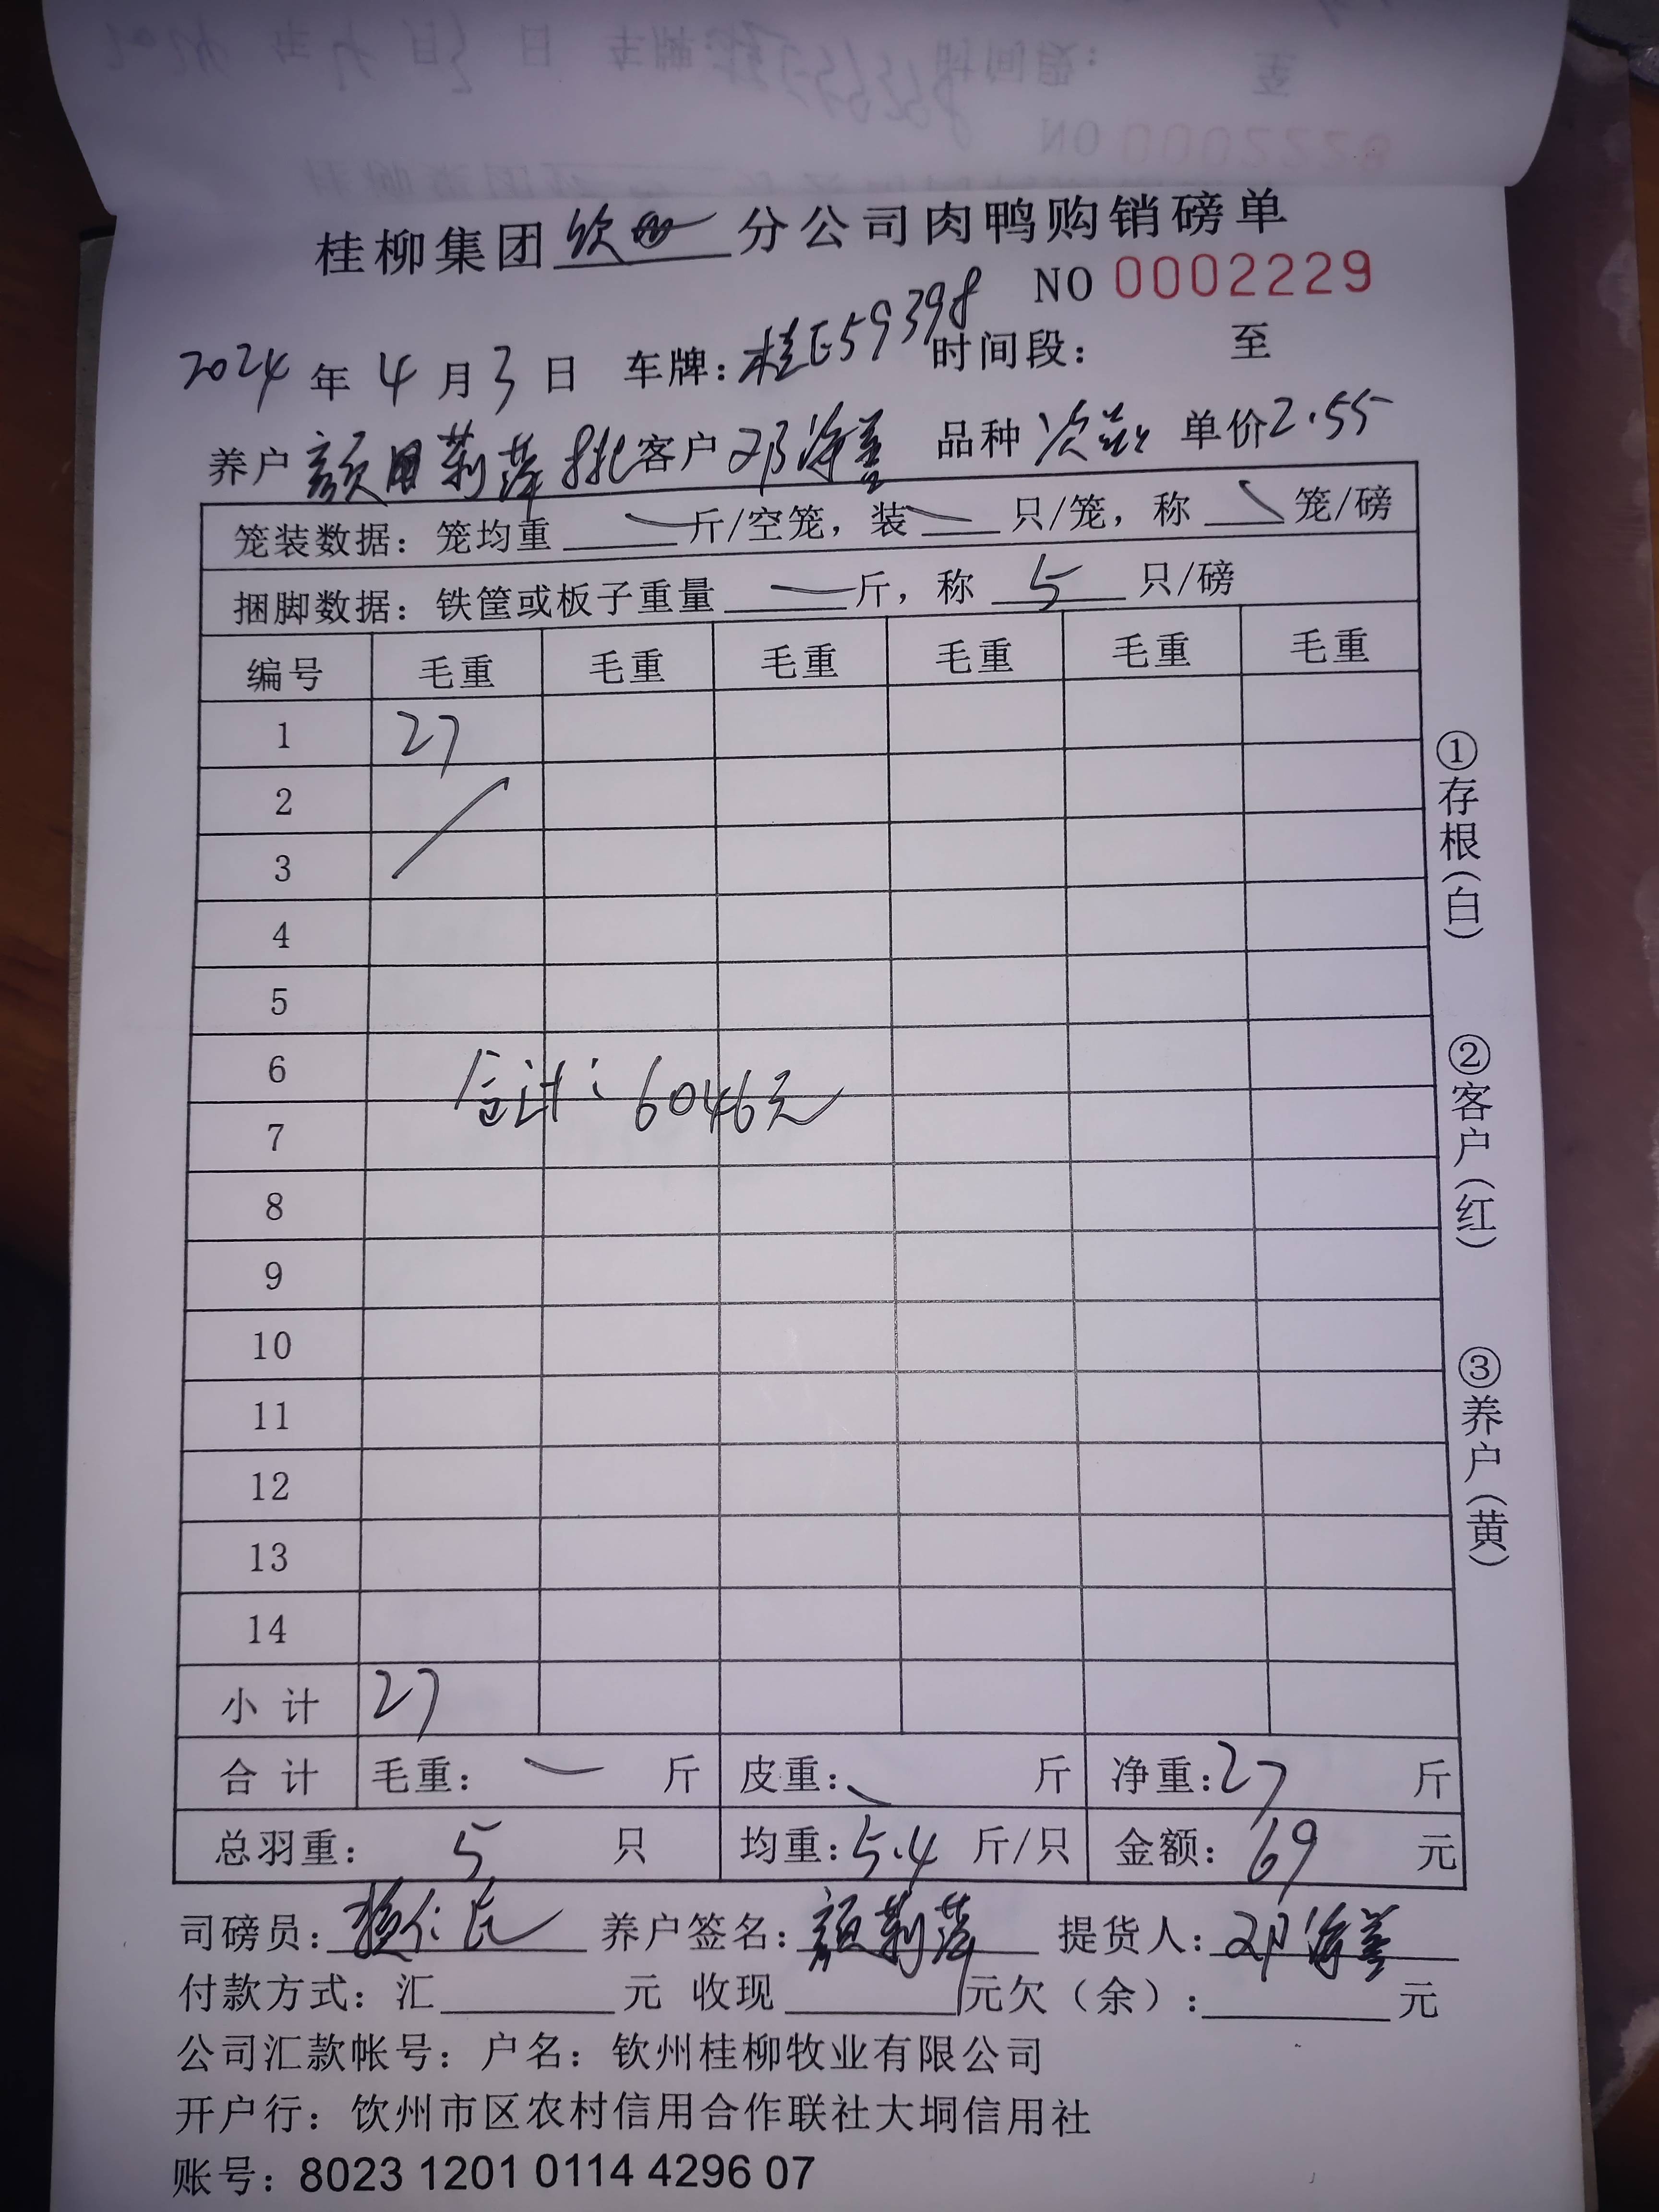 桂柳集团钦州分公司肉鸭购销磅单
NO 0002229
2024 年 4 月 3 日 车牌:桂E59398 时间段: 至
养户 颜莉萍 批 客户 邓海 品种 次 单价2.55
笼装数据: 笼均重 — 斤/空笼, 装 — 只/笼, 称 — 笼/磅
捆脚数据: 铁筐或板子重量 — 斤, 称 5 只/磅
编号 毛重 毛重 毛重 毛重 毛重 毛重
1 27
2
3
4
5
6
合计: 6046元
7
8
9
10
11
12
13
14
小 计 27
合 计 毛重: — 斤 皮重: — 斤 净重:27 斤
总羽重: 5 只 均重:5.4 斤/只 金额: 69 元
司磅员: 养户签名:颜莉萍 提货人:邓海
付款方式: 汇 元 收现 元欠 (余) : 元
公司汇款帐号: 户名: 钦州桂柳牧业有限公司
开户行: 钦州市区农村信用合作联社大垌信用社
账号: 8023 1201 0114 4296 07
①存根(白)
②客户(红)
③养户(黄)